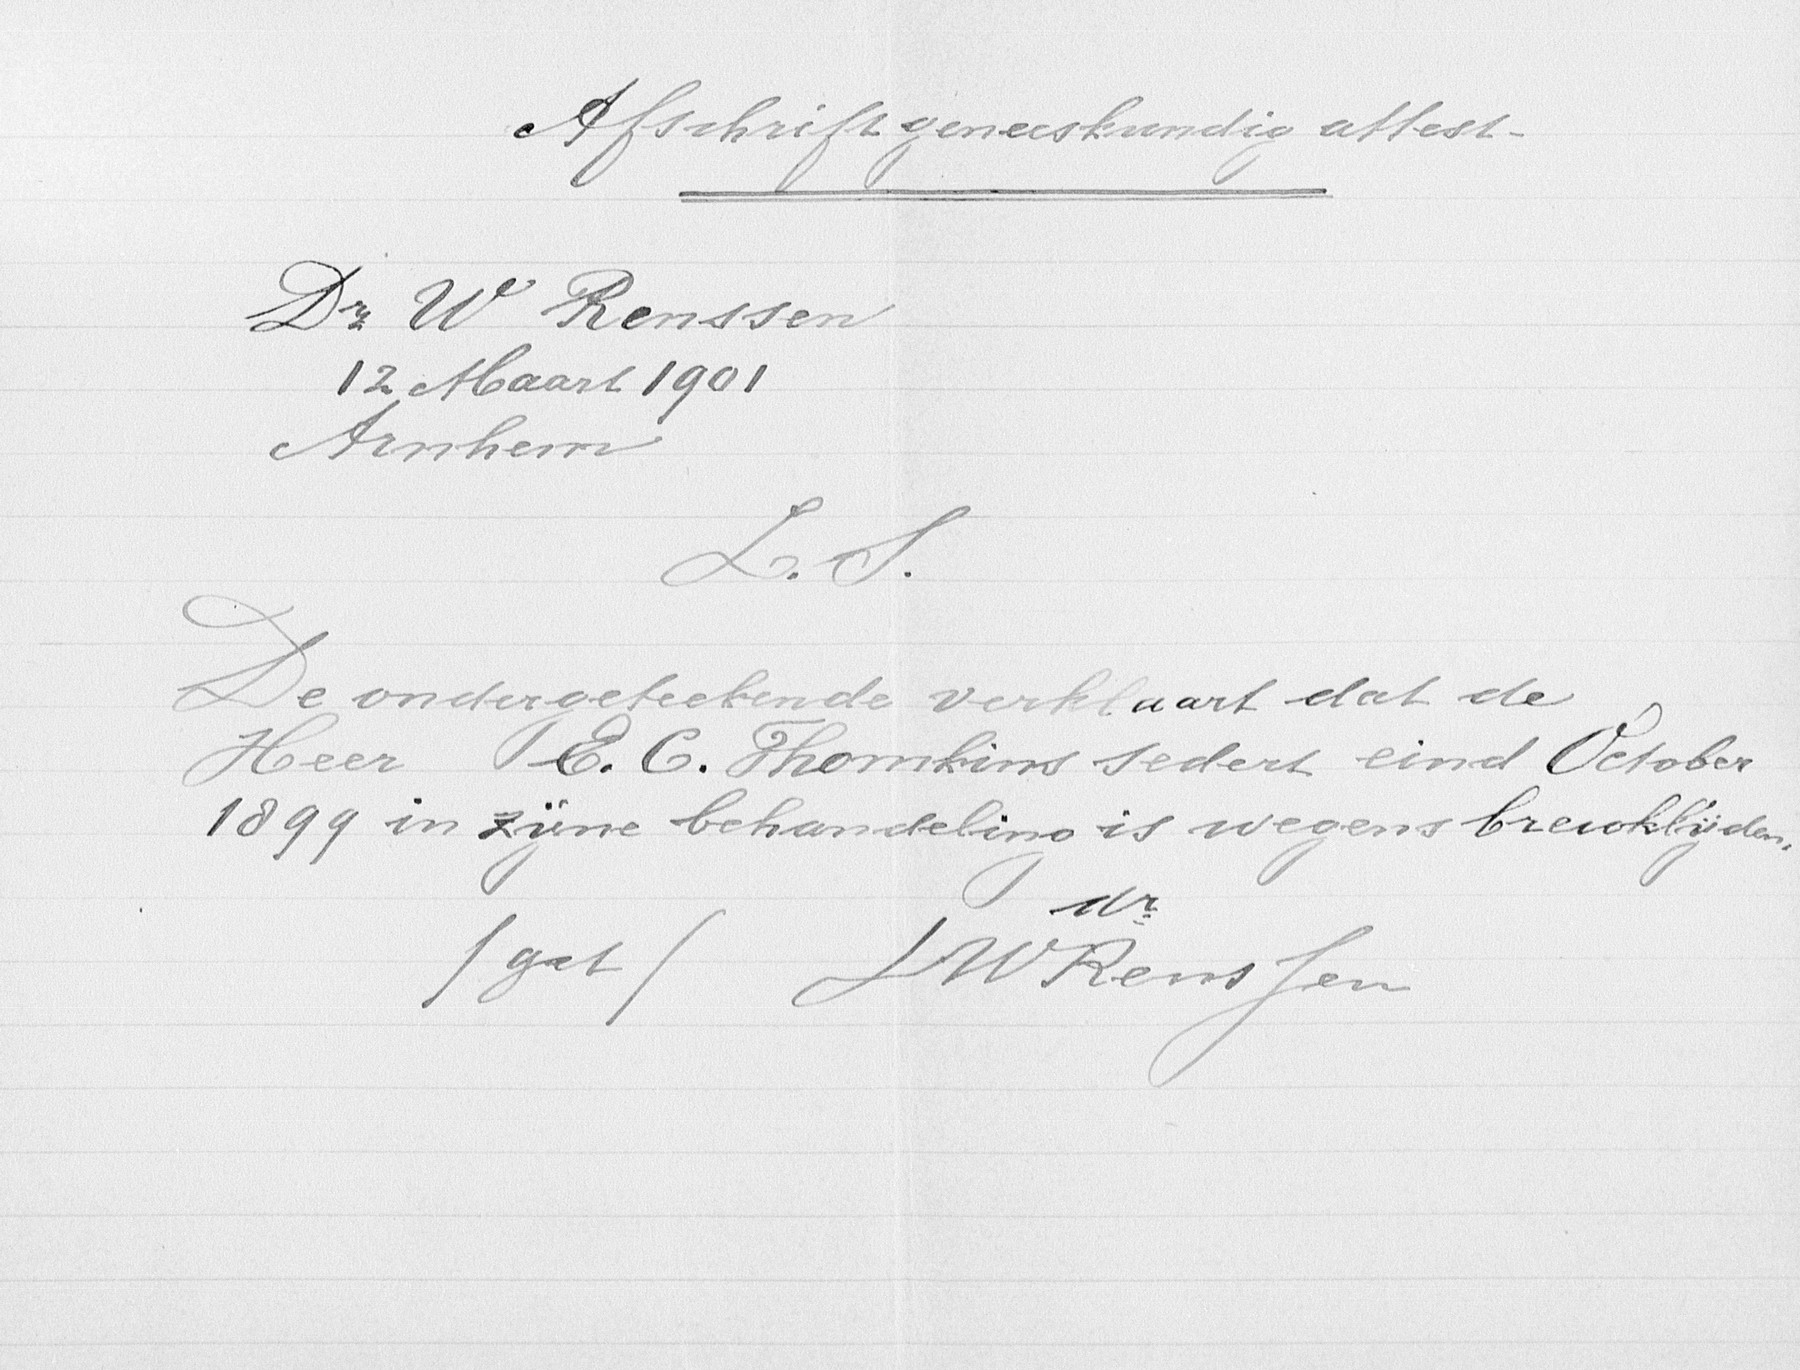 Afschrift geneeskundig attest-
Dr. W Renssen
12 Maart 1901
Arnhem
L. S.
De ondergeteekende verklaart dat de
Heer E. C. Thomkins sedert eind October
1899 in zijne behandeling is wegens breuklijden.
/get/ dr. W Renssen